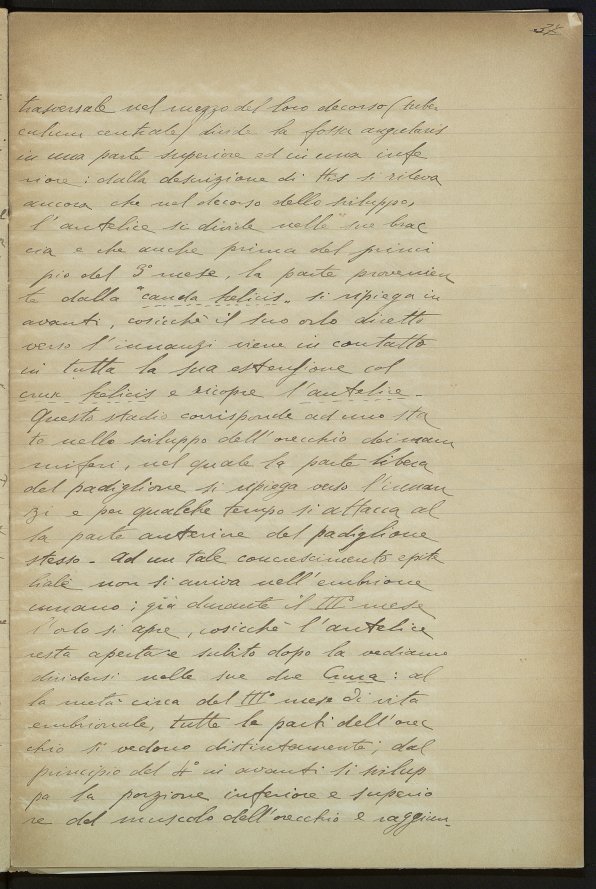 trasversale nel mezzo del loro decorso (tuber
culum centrale) divide la fossa angularis
in una parte superiore ed in una infe
riore: dalla descrizione di His si rileva
ancora che nel decorso dello sviluppo,
l'antelice si divide nelle sue brac
cia e che anche prima del princi
pio del 3° mese, la parte provenien
te dalla "cauda helicis" si ripiega in
avanti, cosicchè il suo orlo diretto
verso l'innanzi viene in contatto
in tutta la sua estensione col
crux helicis e ricopre l'antelice -
Questo stadio corrisponde ad uno sta
to nello sviluppo dell'orecchio dei mam
miferi, nel quale la parte libera
del padiglione si ripiega verso l'innan
zi e per qualche tempo si attacca al
la parte anteriore del padiglione
stesso - Ad un tale concrescimento epite
liale non si arriva nell'embrione
umano; già durante il III° mese
l'orlo si apre, cosicchè l'antelice
resta aperta e subito dopo la vediamo
dividersi nelle sue due Crura: al
la metà circa del III° mese di vita
embrionale, tutte le parti dell'orec
chio si vedono distintamente; dal
principio del 4° in avanti si svilup
pa la porzione inferiore e superio
re del muscolo dell'orecchio e raggiun-